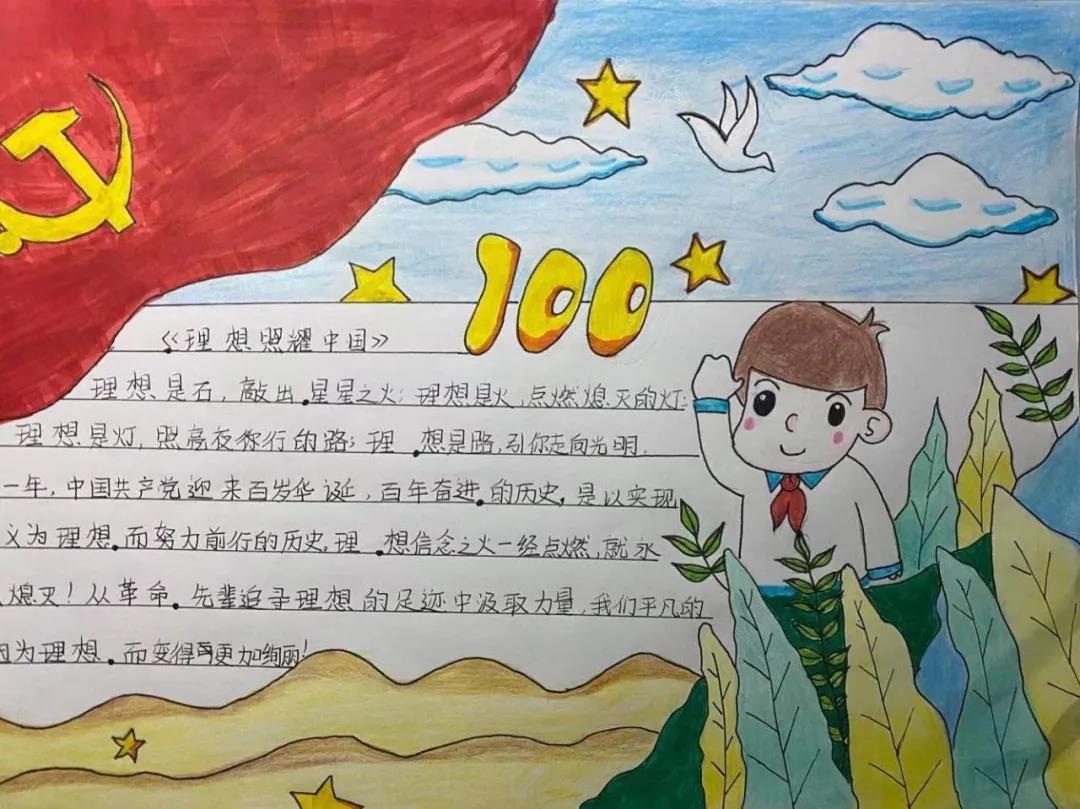 100
《理想照耀中国》
理想是石,敲出.星星之火;理想是火,点燃熄灭的灯;
理想是灯,照亮夜你行的路;理.想是路,引你走向光明.
一年,中国共产党迎来百岁华诞,百年奋进.的历史.是以实现
义为理想.而努力前行的历史.理.想信念之火一经点燃,就永
熄灭!从革命.先辈追寻理想的足迹中汲取力量,我们平凡的
因为理想.而变得更加绚丽!